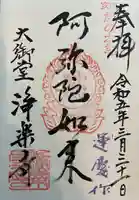 奉拝
令和五年三月三十一日
運慶作
阿弥陀如来
大御堂
浄楽寺